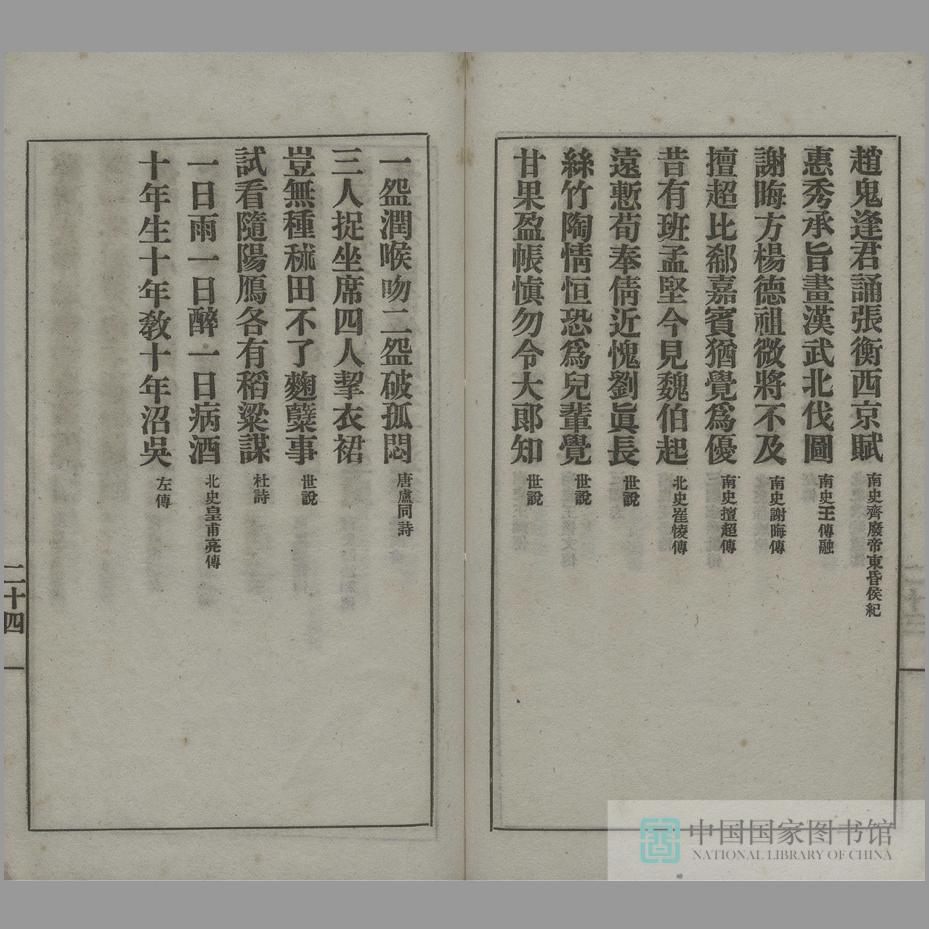 趙鬼逢君誦張衡西京賦 南史齊廢帝東昏侯紀
惠秀承旨畫漢武北伐圖 南史王傳融
謝晦方楊德祖微將不及 南史謝晦傳
擅超比郗嘉賓猶覺爲優 南史擅超傳
昔有班孟堅今見魏伯起 北史崔㥄傳
遠慙荀奉倩近愧劉眞長 世說
絲竹陶情恒恐爲兒輩覺 世說
甘果盈帳愼勿令大郎知 世說
一盌潤喉吻二盌破孤悶 唐盧同詩
三人捉坐席四人挈衣裙
豈無種秫田不了麴糵事 世說
試看隨陽鴈各有稻粱謀 杜詩
一日雨一日醉一日病酒 北史皇甫亮傳
十年生十年敎十年沼吳 左傳
二十四
中国国家图书馆
NATIONAL LIBRARY OF CHINA